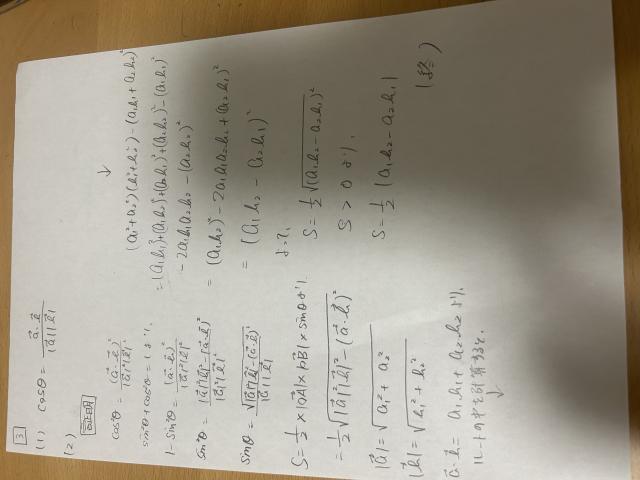 3
(1) cosθ = a⃗・b⃗ / |a⃗||b⃗|
(2)
証明
cos²θ = (a⃗・b⃗)² / |a⃗|²|b⃗|²
sin²θ + cos²θ = 1 より、
1 - sin²θ = (a⃗・b⃗)² / |a⃗|²|b⃗|²
sin²θ = |a⃗|²|b⃗|² - (a⃗・b⃗)² / |a⃗|²|b⃗|²
sinθ = √|a⃗|²|b⃗|² - (a⃗・b⃗)² / |a⃗||b⃗|
S = 1/2 × |OA| × |OB| × sinθ より
= 1/2 √|a⃗|²|b⃗|² - (a⃗・b⃗)²
|a⃗| = √a₁² + a₂²
|b⃗| = √b₁² + b₂²
a⃗・b⃗ = a₁b₁ + a₂b₂ より、
ルートの中を計算すると、
↓
↓
(a₁² + a₂²)(b₁² + b₂²) - (a₁b₁ + a₂b₂)²
= (a₁b₁)² + (a₁b₂)² + (a₂b₁)² + (a₂b₂)² - (a₁b₁)²
- 2a₁b₁a₂b₂ - (a₂b₂)²
= (a₁b₂)² - 2a₁b₁a₂b₂ + (a₂b₁)²
= (a₁b₂ - a₂b₁)²
よって、
S = 1/2 √(a₁b₂ - a₂b₁)²
S > 0 より、
S = 1/2 |a₁b₂ - a₂b₁|
(終)